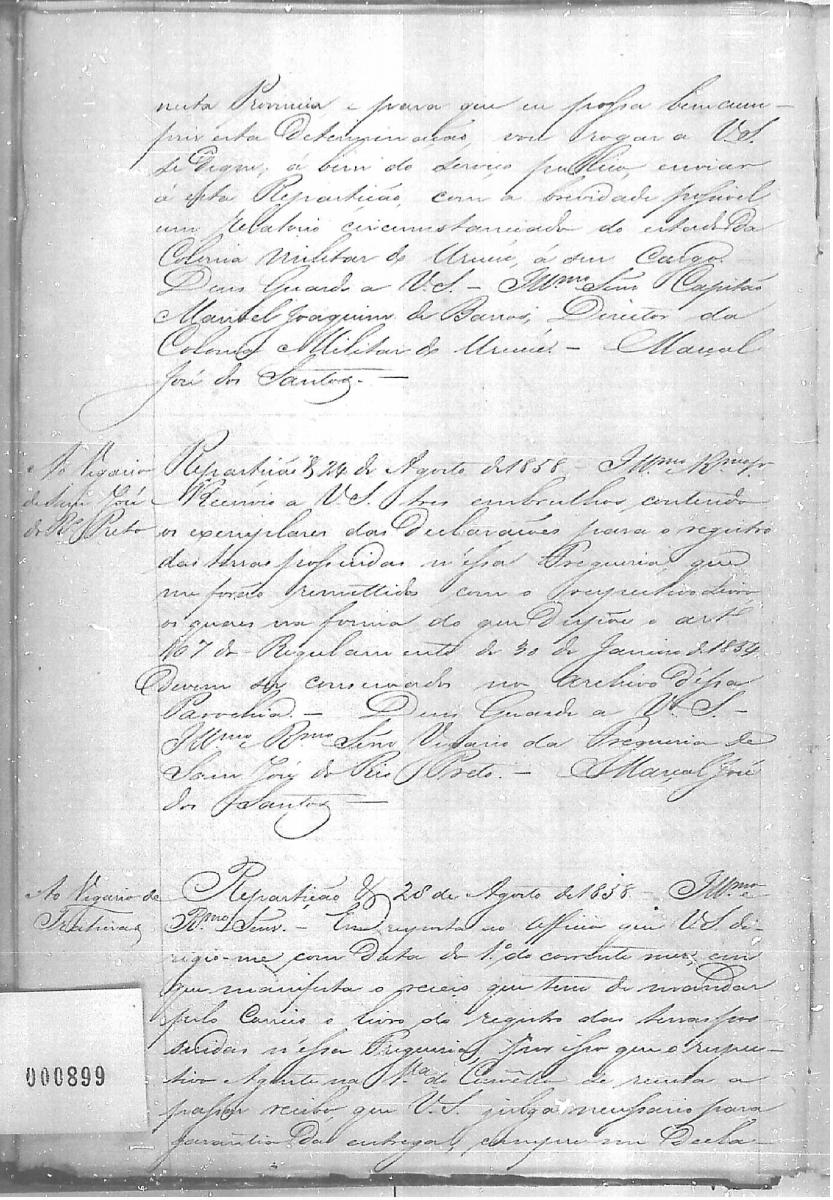 nesta Provincia e para que eu possa bem cum-
prir esta Determinação, vou rogar a V.S.
se Digne, a bem do serviço publico enviar
á esta Repartição, com a brevidade possivel
um relatorio circumstanciado do estado da
Colonia Militar do Urucú, á seu Cargo.
Deos Guarde a V.S. - Illmo Senr Capitão
Manoel Joaquim de Barros, Director da
Colonia Militar do Urucú. - Marçal
José dos Santos. -
Ao Vigario
de Sam José
do Rº Preto
Repartição & 24 de Agosto de 1858 - Illmo e Rmo Sr
Reenvio a V.S. tres embrulhos, contendo
os exemplares das Declarações para o registro
das terras possuidas n'essa Freguezia, que
me forão remettidos com o respectivo livro
os quaes na forma do que Dispõe o artº
107 do Regulamento de 30 de Janeiro de 1854
devem ser conservados no archivo d'essa
Parochia. - Deos Guarde a V.S. -
Illmo e Rmo Senr Vigario da Freguezia de
Sam José do Rio Preto. - Marçal José
dos Santos -
Ao Vigario de
Repartição & 28 de Agosto de 1858 - Illmo e
Rmo Senr. - Em resposta ao officio que V.S. di-
regio-me com Data do 1º do corrente mez, em
que manifesta o receio que tem de mandar
pelo Correio o livro do registro das terras pos-
suidas n'essa Freguezia, por isso que o respec-
tivo Agente na do se recusa a
passar recibo, que V.S. julga necessario para
garantia da entrega, cumpre-me Decla-
000899